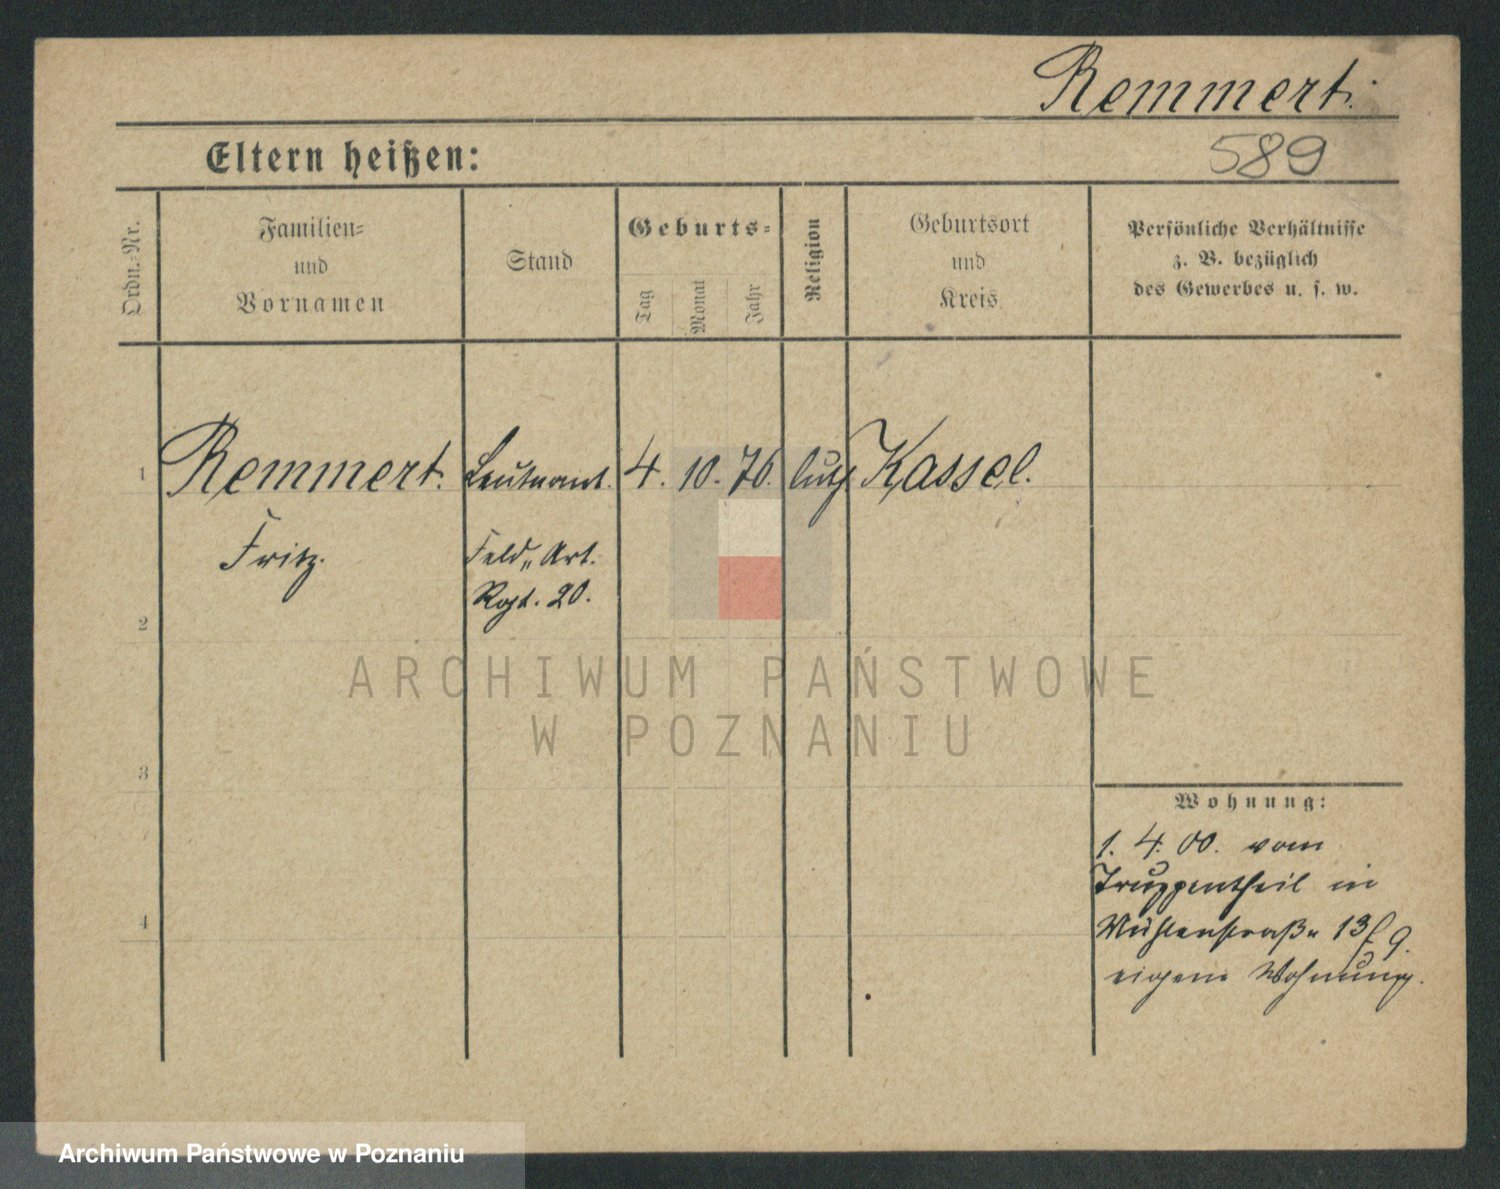 Remmert.
589
Eltern heißen:
Ordn.-Nr.
Familien-
und
Vornamen
Stand
Geburts-
Tag
Monat
Jahr
Religion
Geburtsort
und
Kreis
Persönliche Verhältnisse
z. B. bezüglich
des Gewerbes u. s. w.
1
Remmert.
Leutnant.
4. 10. 76.
luth.
Kassel.
Fritz.
Feld„Art.
Rgt. 20.
2
3
4
Wohnung:
1. 4. 00. vom
Truppentheil in
Mühlenstraße 13
eigene Wohnung.
ARCHIWUM PAŃSTWOWE
W POZNANIU
Archiwum Państwowe w Poznaniu